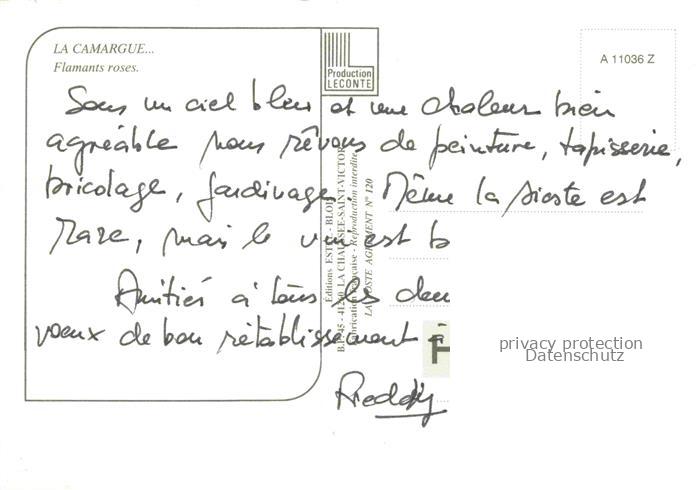 LA CAMARGUE...
Flamants roses.
Production
LECONTE
A 11036 Z
Sous un ciel bleu et une chaleur bien
agréable nous rêvons de peinture, tapisserie,
bricolage, jardinage. Même la sieste est
rare, mais le vin est b
Amitiés à tous les deu
voeux de bon rétablissement à
Freddy
Éditions ESTEL - BLOIS
B.P. 45 - 41260 LA CHAUSSÉE-SAINT-VICTOR
Fabrication Française - Reproduction interdite
LA POSTE AGRÉMENT N° 120
privacy protection
Datenschutz